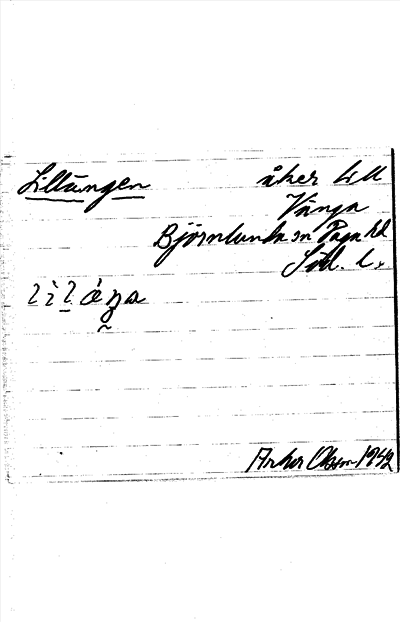 Lillängen åker till
Vänga
Björnlunda sn Daga hd
Söd. l.
Arthur Olsson 1942